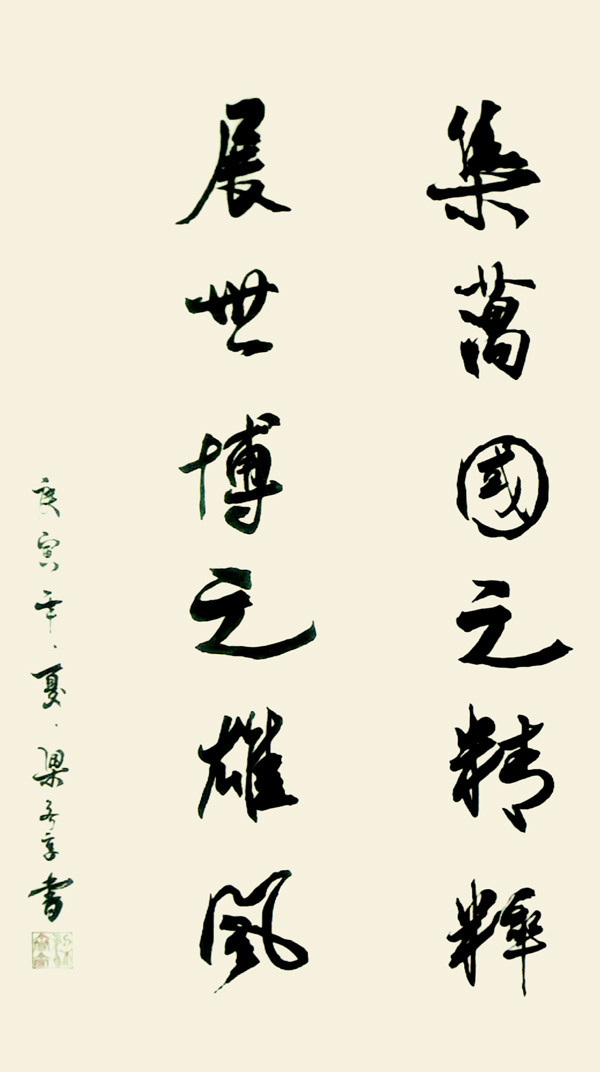 集萬國之精粹
展世博之雄風
庚寅年夏梁 享書